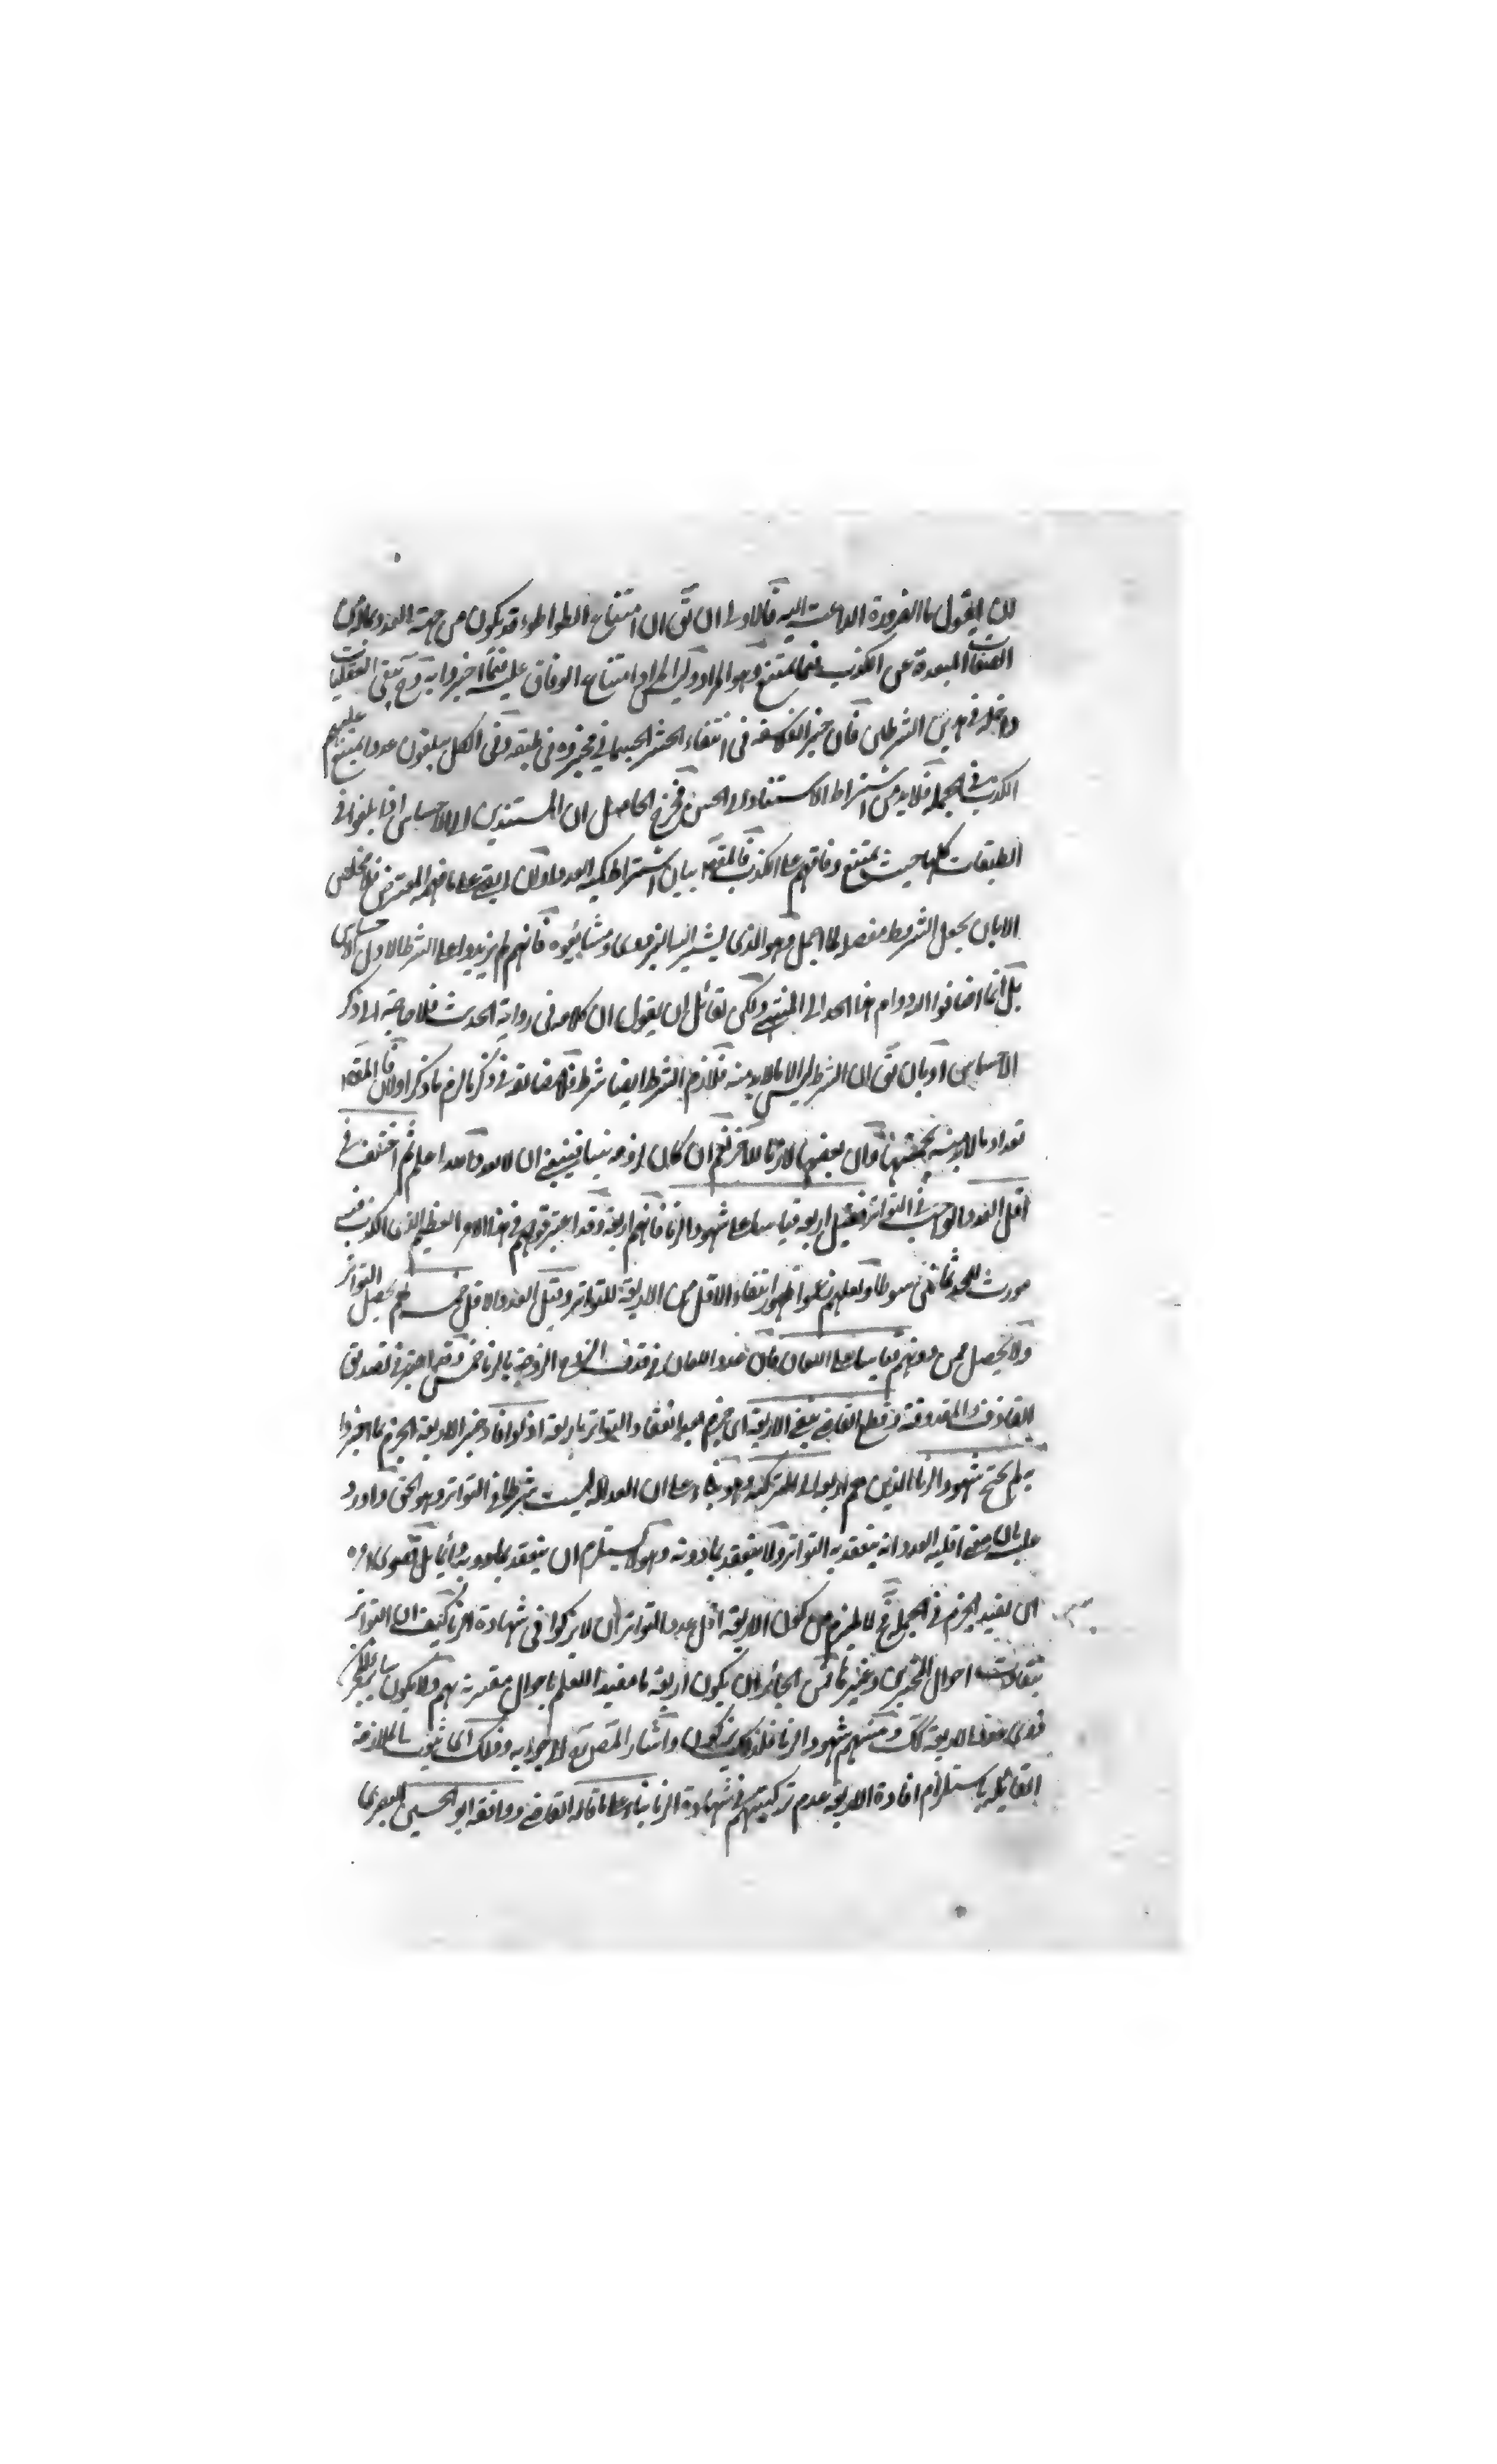 لان القول ما الضرورة الداعية اليه فالاولى ان يق ان امتناع التواطؤ قد يكون من جهة العدد
الصفات المبعدة عن الكذب وهو المراد وليس المراد امتناع الوفاق عليه فيما اخبروا به وح تبقى العقليات
داخلة في هذين الشرطين فان خبر الفلاسفة في انتفاء الحشر الجسماني مخبروه في طبقة وفى الكل يبلغون عددا يمتنع عليهم
الكذب في الجملة فلا بد من اشتراط الاستناد الى الحس فخرج الحاصل ان المستندين الى الاحساس اذا بلغوا في
الطبقات كلها حيث يمتنع وفاقهم على الكذب فالمقصـ بيان اشتراط كمية العدد اولا على ما فهمه المعترض فلا مخلص
الا بان يجعل الشروط مفصلة لما اجمل وهو الذي يشير اليه البزدوى ومشايعوه فانهم لم يزيدوا على الشرط الاول الاحساس
بل انما اضافوا الدوام هذا الحد الى المنتهى ولكن لقائل ان يقول ان كلامه في رواية الحديث فلا حاجة الى ذكر
الاحساس او بان يق ان الشرط ليس الا ما لا بد منه فلازم الشرط ايضا شرط فلا مضايقة في ذكر ما لزم ما ذكر اولا فان المقصـ
تعداد ما لا بد منه وان بعضها لازما للاخر نعم ان كان لزومه بينا فينبغي ان لا يعد واحدا ثم اختلف في
اقل العدد الواجب في التواتر فقيل اربعة قياسا على شهود الزنا فانهم اربعة وقد اعتبر قولهم في هذا الامر العظيم الذي الكذب فيه
مورث للحد ثمانين سوطا ولعلهم زعموا ظهور انتفاء الاقل من الاربعة للتواتر وقيل العدد الاقل خمسة يحصل التواتر
ولا يحصل من دونهم قياسا على اللعان فان عدد اللعان في قذف الزوج الزوجة بالزنا خمس وقد اعتبر في تصديق
القاذف والمقذوفة وقطع القاضي بنفي الاربعة اى جزم بعدم انعقاد التواتر باربعة اذ لو افاد خبر الاربعة الجزم بما اخبروا
به لم يحتج شهود الزنا الذين هم اربعة الى التزكية وهو بناء على ان العدالة ليست بشرط في التواتر وهو الحق واورد
عليه بان معنى اقلية العدد انه ينعقد به التواتر ولا ينعقد بما دونه وهو لا يستلزم ان ينعقد
ان يفيد الجزم في الجملة فح لا يلزم من كون الاربعة اقل عدد التواتر ان لا يزكوا في شهادة الزنا كيف ان التواتر
يتفاوت احوال المخبرين وغيرها فمن الجائز ان يكون اربعة ما مفيدا للعلم باحوال مقترنة بهم ولا يكون
الاربعة كك ومنهم شهود الزنا فلذلك يزكون واشار المصـ الى جوابه وذلك اى ثبوت الملازمة
القائلة باستلزام افادة الاربعة عدم تزكيتهم في شهادة الزنا بناء على ما قاله القاضي ووافقه ابو الحسين البصرى